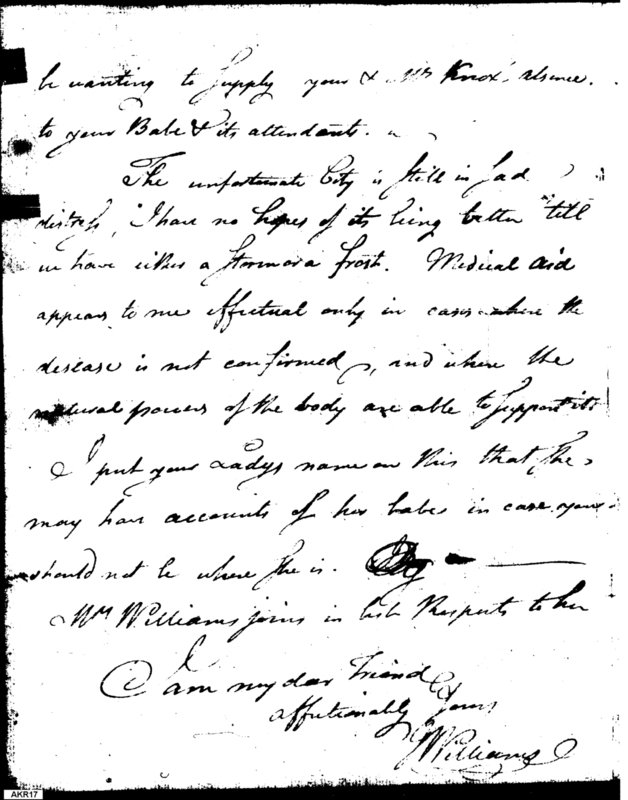 be wanting to Supply your & Mrs Knox' absence.
to your Babe & its attendants.
The unfortunate City is still in sad
distress, I have no hopes of its being better 'till
we have either a storm or a frost. Medical aid
appears to me effectual only in cases where the
desease is not confirmed, and where the
natural powers of the body are able to support it.
I put your Ladys name on this that she
may have accounts of her babe in case you
should not be where she is.
Mrs Williams joins in best Respects to her
I am my dear Friend
affectionably yours
Williams
AKR17